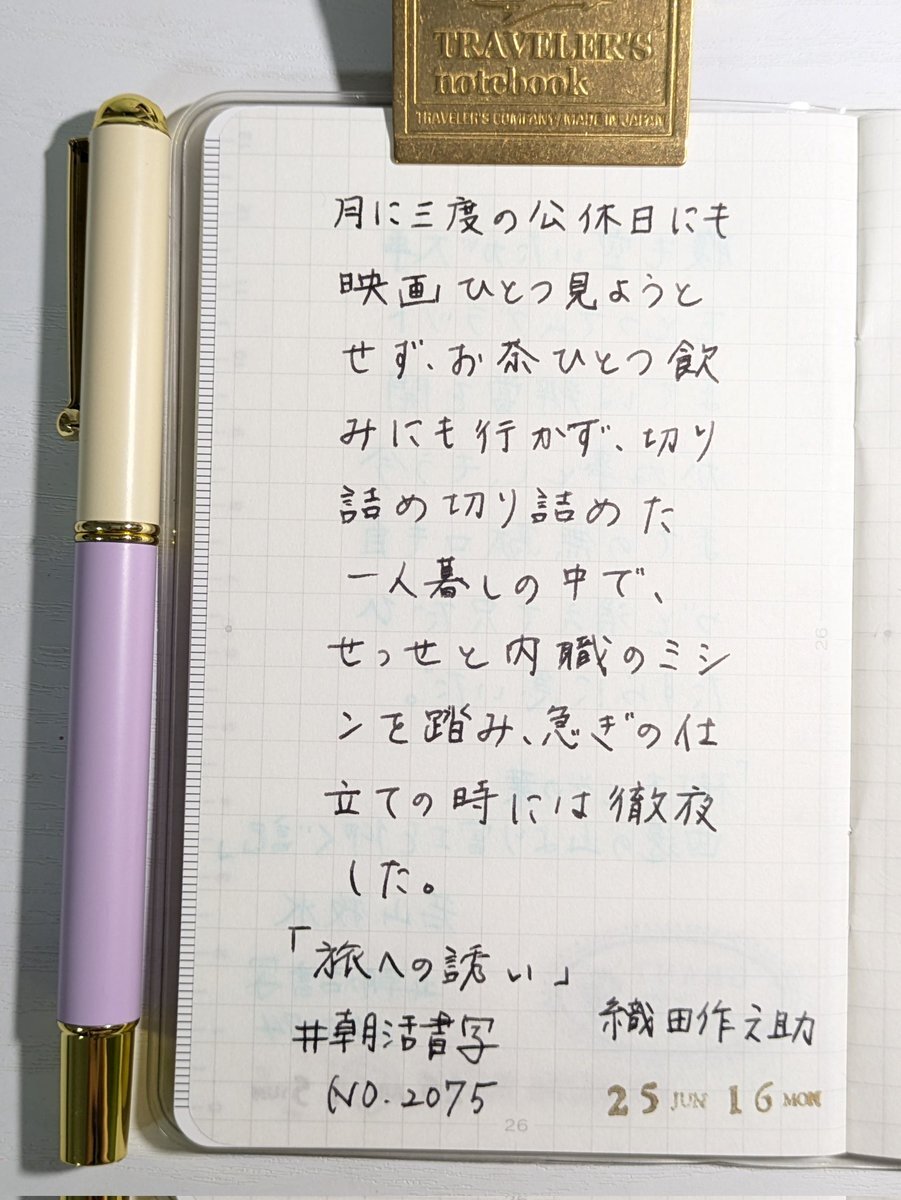 TRAVELER'S
notebook
TRAVELER'S COMPANY/MADE IN JAPAN
月に三度の公休日にも
映画ひとつ見ようと
せず、お茶ひとつ飲
みにも行かず、切り
詰め切り詰めた
一人暮しの中で、
せっせと内職のミシ
ンを踏み、急ぎの仕
立ての時には徹夜
した。
「旅への誘い」
織田作之助
#朝活書写
NO.2075
25 JUN 16 MON
26